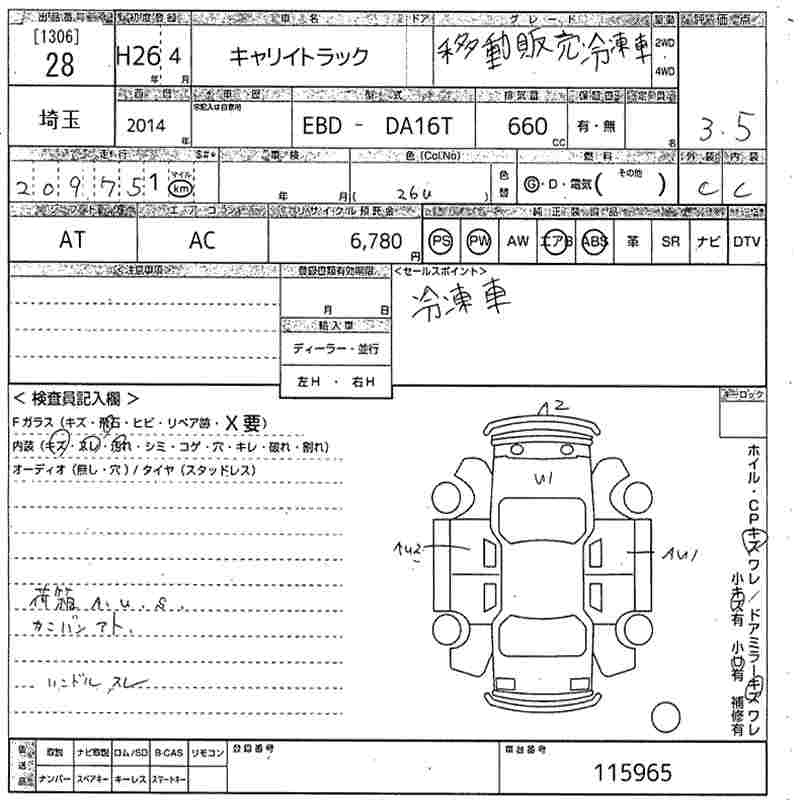 出品番号 初度登録 車名 ドア グレード 駆動 評価点
[1306]
28
H26 4
年 月
キャリイトラック
移動販売冷凍車
2WD
・
4WD
3.5
西暦 車歴 型式 排気量 保証書 定員
埼玉
2014 年
EBD - DA16T
660 CC
有・無
名
走行 車検 色(Col.No) 燃料 外装 内装
209751
マイル
km
年 月
( 26U )
色替
G・D・電気(その他 )
C C
シフト エアコン リサイクル預託金 純正装備品
AT AC 6,780 円
PS PW AW エアB ABS 革 SR ナビ DTV
<注意事項>
登録書類有効期限
月 日
輸入車
ディーラー・並行
左H ・ 右H
<セールスポイント>
冷凍車
< 検査員記入欄 >
キーロック
Fガラス (キズ・飛石・ヒビ・リペア歯・X要)
内装 (キズ・スレ・汚れ・シミ・コゲ・穴・キレ・破れ・割れ)
オーディオ (無し・穴) / タイヤ (スタッドレス)
A2
U1
AU2
AU1
荷箱 A.U.S.
カンバンアト.
ハンドル スレ
ホイル・CPキズワレ/ドアミラーキズワレ
小キズ有 小凹有 補修有
後送品
取説 ナビ取説 ロム/SD B-CAS リモコン
ナンバー スペアキー キーレス スマートキー
登録番号
車台番号
115965